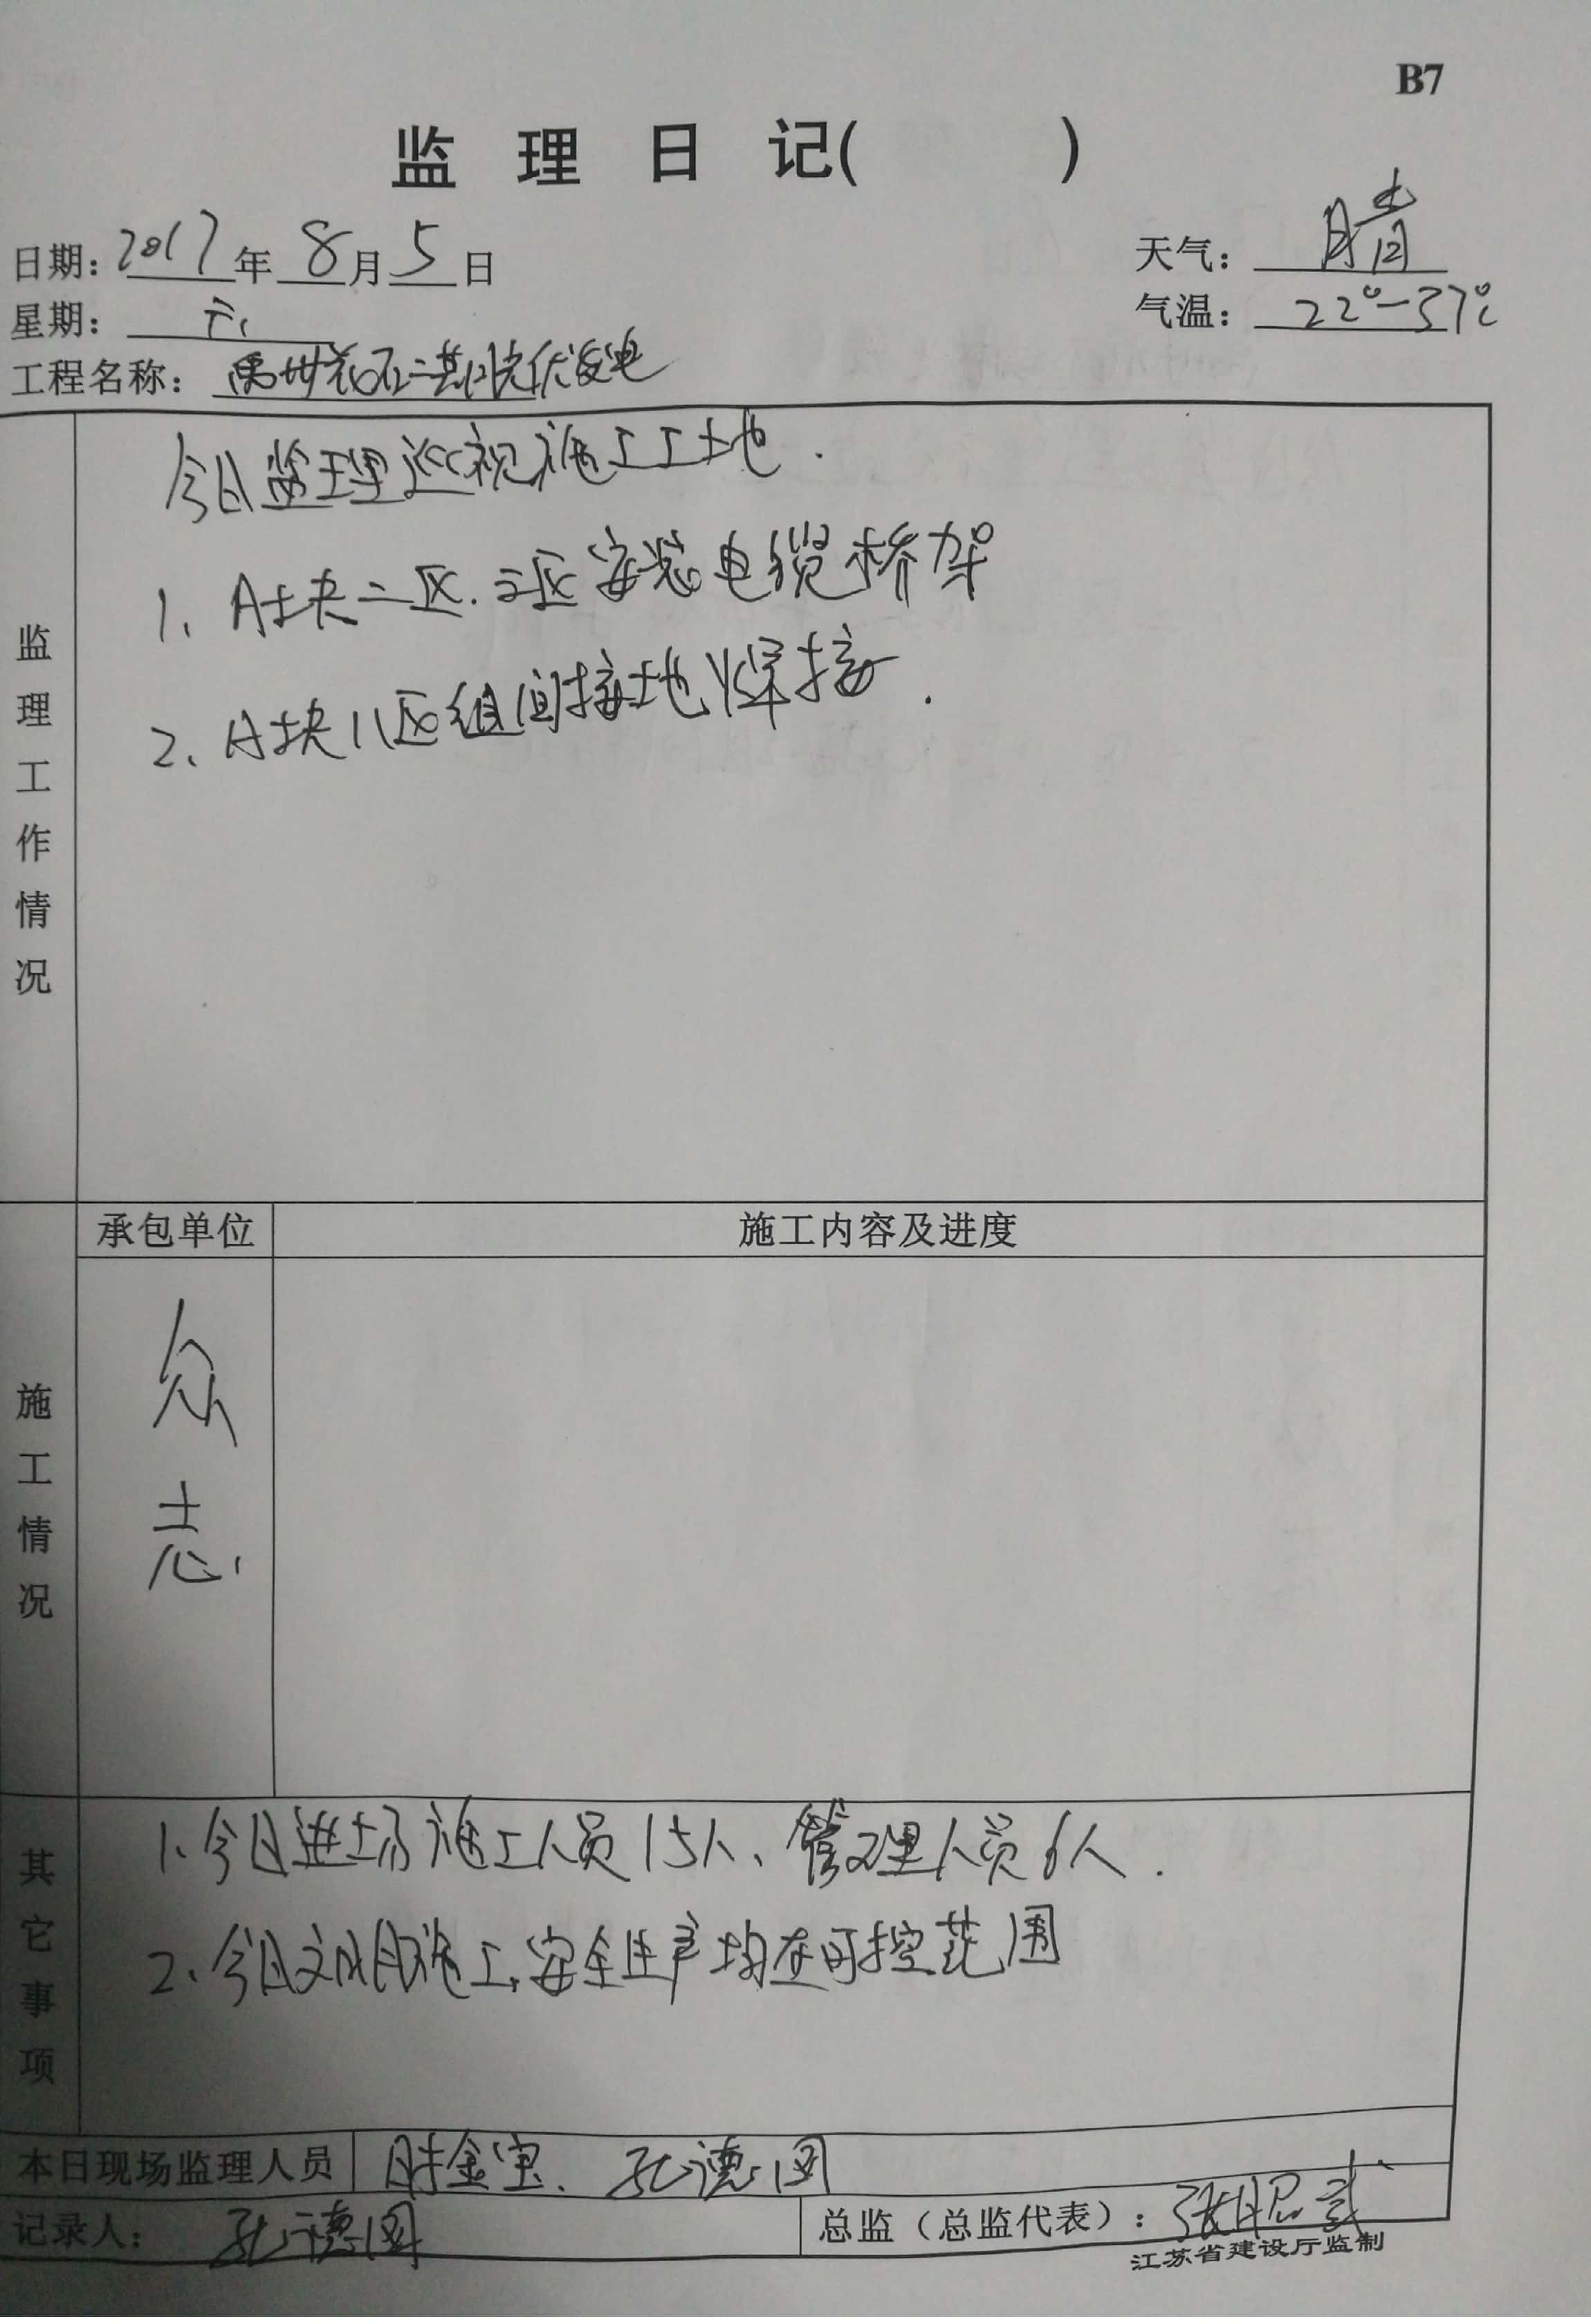 B7
监 理 日 记( )
日期: 2017 年 8 月 5 日
天气: 晴
星期: 六
气温: 22°-37℃
工程名称: 禹州花石二期光伏发电
监理工作情况
今日监理巡视施工工地.
1、A块二区.三区安装电缆桥架
2、A块11区组间接地焊接.
承包单位
施工内容及进度
施工情况
众志
其它事项
1、今日进场施工人员15人、管理人员6人.
2、今日文明施工,安全生产均在可控范围
本日现场监理人员 金宝、孔德国
记录人: 孔德国
总监(总监代表): 张
江苏省建设厅监制